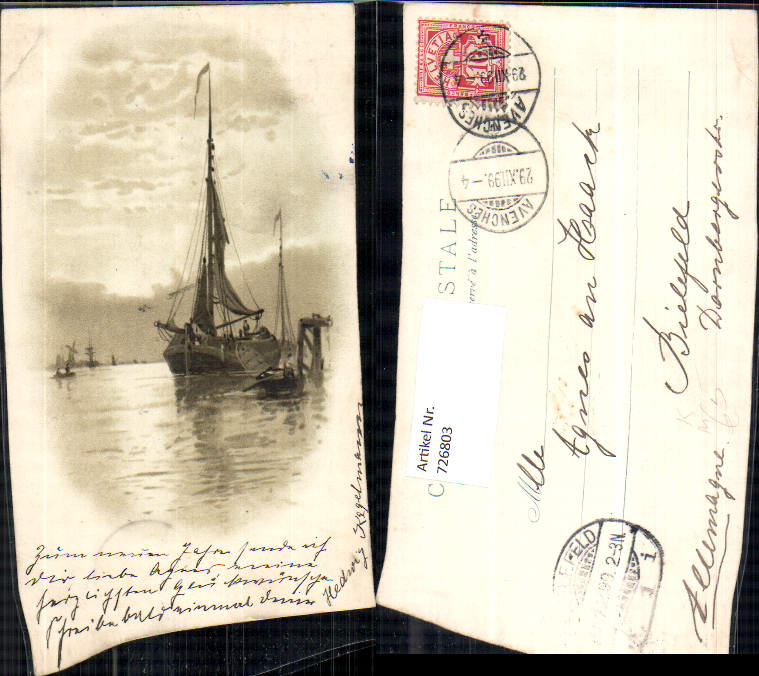 Zum neuen Jahre sende ich
Dir liebe Agnes meine
herzlichsten Glückwünsche
Schreibe bald einmal Deiner
Hedwig Kegelmann
HELVETIA
FRANCO
10
29.XII.99.
AVENCHES
29.XII.99.-4
AVENCHES
C STALE
servé à l'adresse
Artikel Nr.
726803
Mlle
Agnes an Haack
Bielefeld
Dornbergerstr.
Allemagne
LEFELD
2-3N